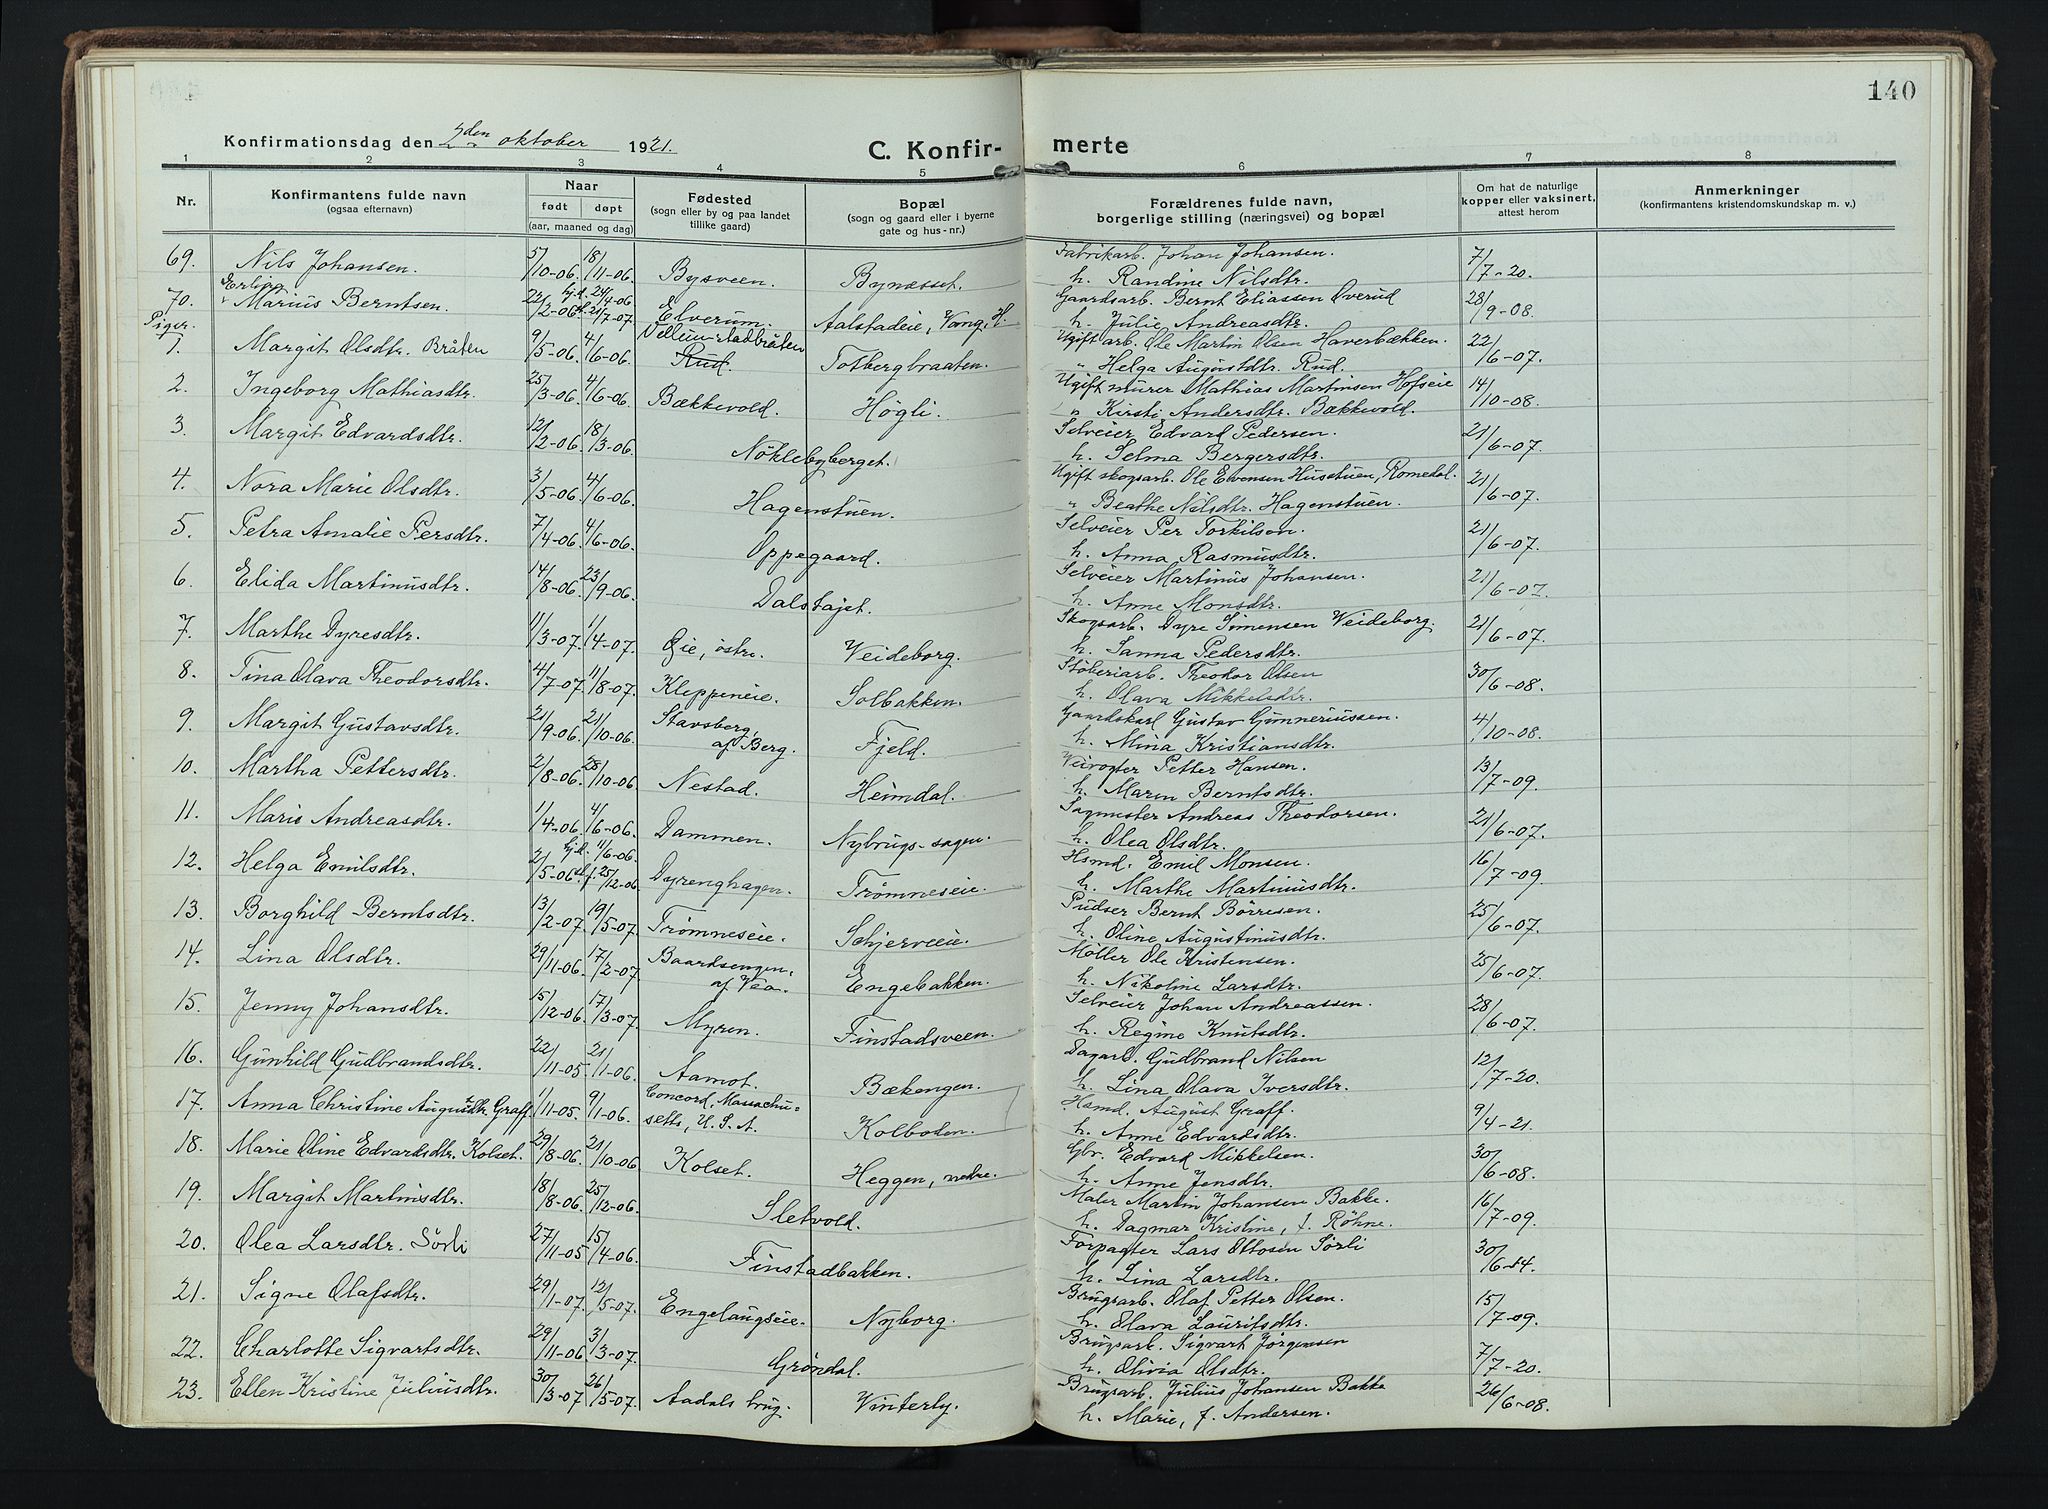 140
Konfirmationsdag den 2den oktober 1921.
C. Konfirmerte
1 2 3 4 5 6 7 8
Nr.
Konfirmantens fulde navn (ogsaa efternavn)
Naar født døpt (aar, maaned og dag)
Fødested (sogn eller by og paa landet tillike gaard)
Bopæl (sogn og gaard eller i byerne gate og hus-nr.)
Forældrenes fulde navn, borgerlige stilling (næringsvei) og bopæl
Om hat de naturlige kopper eller vaksinert, attest herom
Anmerkninger (konfirmantens kristendomskundskap m. v.)
69. Nils Johansen. 5/10-06. 18/11-06. Bysveen. Bynæsset. Fabrikarb. Johan Johansen. 7/7-20.
h. Randine Nilsdtr.
70. Erling Marius Berntsen. 22/2-06. hj.d. 24/4-06. 21/7-07. Elverum. Aalstadeie, Vang, H. Gaardsarb. Bernt Eliassen Øverud 28/9-08.
h. Julie Andreasdtr.
Piger.
1. Margit Olsdtr. Bråten 9/5-06. 4/6-06. Rud. Totbergbraaten. Ugift arb. Ole Martin Olsen Haverbækken. 22/6-07.
" Helga Augustdtr. Rud.
2. Ingeborg Mathiasdtr. 25/3-06. 4/6-06. Bækkevold. Högli. Ugift murer Mathias Martinsen Hofseie 14/10-08.
" Kirsti Andersdtr. Bækkevold.
3. Margit Edvardsdtr. 12/2-06. 18/3-06. Nöklebyberget. Selveier Edvard Pedersen. 21/6-07.
h. Selma Bergersdtr.
4. Nora Marie Olsdtr. 3/5-06. 4/6-06. Hagenstuen. Ugift skogsarb. Ole Evensen Husstuen, Romedal. 21/6-07.
" Beathe Nilsdtr. Hagenstuen.
5. Petra Amalie Persdtr. 7/4-06. 4/6-06. Oppegaard. Selveier Per Torkilsen. 21/6-07.
h. Anna Rasmusdtr.
6. Elida Martinusdtr. 14/8-06. 23/9-06. Dalstajet. Selveier Martinus Johansen. 21/6-07.
h. Anne Monsdtr.
7. Marthe Dyresdtr. 11/3-07. 1/4-07. Øie, östre. Veideborg. Skogsarb. Dyre Simensen Veideborg. 21/6-07.
h. Sanna Pedersdtr.
8. Tina Olava Theodorsdtr. 4/7-07. 11/8-07. Kleppeneie. Solbakken. Stöberiarb. Theodor Olsen 30/6-08.
h. Olava Mikkelsdtr.
9. Margit Gustavsdtr. 21/9-06. 21/10-06. Stavsberg, af Berg. Fjeld. Gaardskarl Gustav Gunneriussen. 4/10-08.
h. Mina Kristiansdtr.
10. Martha Pettersdtr. 2/8-06. 28/10-06. Nestad. Heimdal. Veivogter Petter Hansen. 13/7-09.
h. Maren Berntsdtr.
11. Marie Andreasdtr. 1/4-06. 4/6-06. Dammen. Nybrugs-sagen. Sagmester Andreas Theodorsen. 21/6-07.
h. Olea Olsdtr.
12. Helga Emilsdtr. 2/5-06. hj.d. 11/6-06. 25/12-06. Dyrenghagen. Trømneseie. Hsmd. Emil Monsen. 16/7-09.
h. Marthe Martinusdtr.
13. Borghild Berntsdtr. 13/2-07. 19/5-07. Trømneseie. Schjerveeie. Pudser Bernt Börresen. 25/6-07.
h. Oline Augustinusdtr.
14. Lina Olsdtr. 29/11-06. 17/2-07. Baardsengen, af Vea. Engebakken. Möller Ole Kristensen. 25/6-07.
h. Nikoline Larsdtr.
15. Jenny Johansdtr. 15/12-06. 17/3-07. Myren. Finstadsveen. Selveier Johan Andreassen. 28/6-07.
h. Regine Knutsdtr.
16. Gunhild Gudbrandsdtr. 22/11-05. 21/1-06. Aamot. Bækengen. Dagarb. Gudbrand Nilsen 12/7-20.
h. Lina Olava Iversdtr.
17. Anna Christine Augustdtr. Graff. 1/11-05. 9/1-06. Concord, Massachusetts, U. S. A. Kolboten. Hsmd. August Graff. 9/4-21.
h. Anne Edvardsdtr.
18. Marie Oline Edvardsdtr. Kolset. 29/8-06. 21/10-06. Kolset. Heggen, nedre. Gbr. Edvard Mikkelsen. 30/6-08.
h. Anne Jensdtr.
19. Margit Martinsdtr. 18/8-06. 25/12-06. Sletvold. Maler Martin Johansen Bakke. 16/7-09.
h. Dagmar Kristine, f. Röhne.
20. Olea Larsdtr. Sörli 27/11-05. 15/4-06. Finstadbakken. Forpagter Lars Ottosen Sörli 30/6-14.
h. Lina Larsdtr.
21. Signe Olafsdtr. 29/1-07. 12/5-07. Engelaugseie. Nyborg. Brugsarb. Olaf Petter Olsen. 15/7-09.
h. Olava Lauritsdtr.
22. Charlotte Sigvartsdtr. 29/11-06. 3/3-07. Gröndal. Brugsarb. Sigvart Jørgensen 7/7-20.
h. Olivia Olsdtr.
23. Ellen Kristine Juliusdtr. 30/3-07. 26/5-07. Aadals brug. Vinterly. Brugsarb. Julius Johansen Bakke 26/6-08.
h. Marie, f. Andersen.